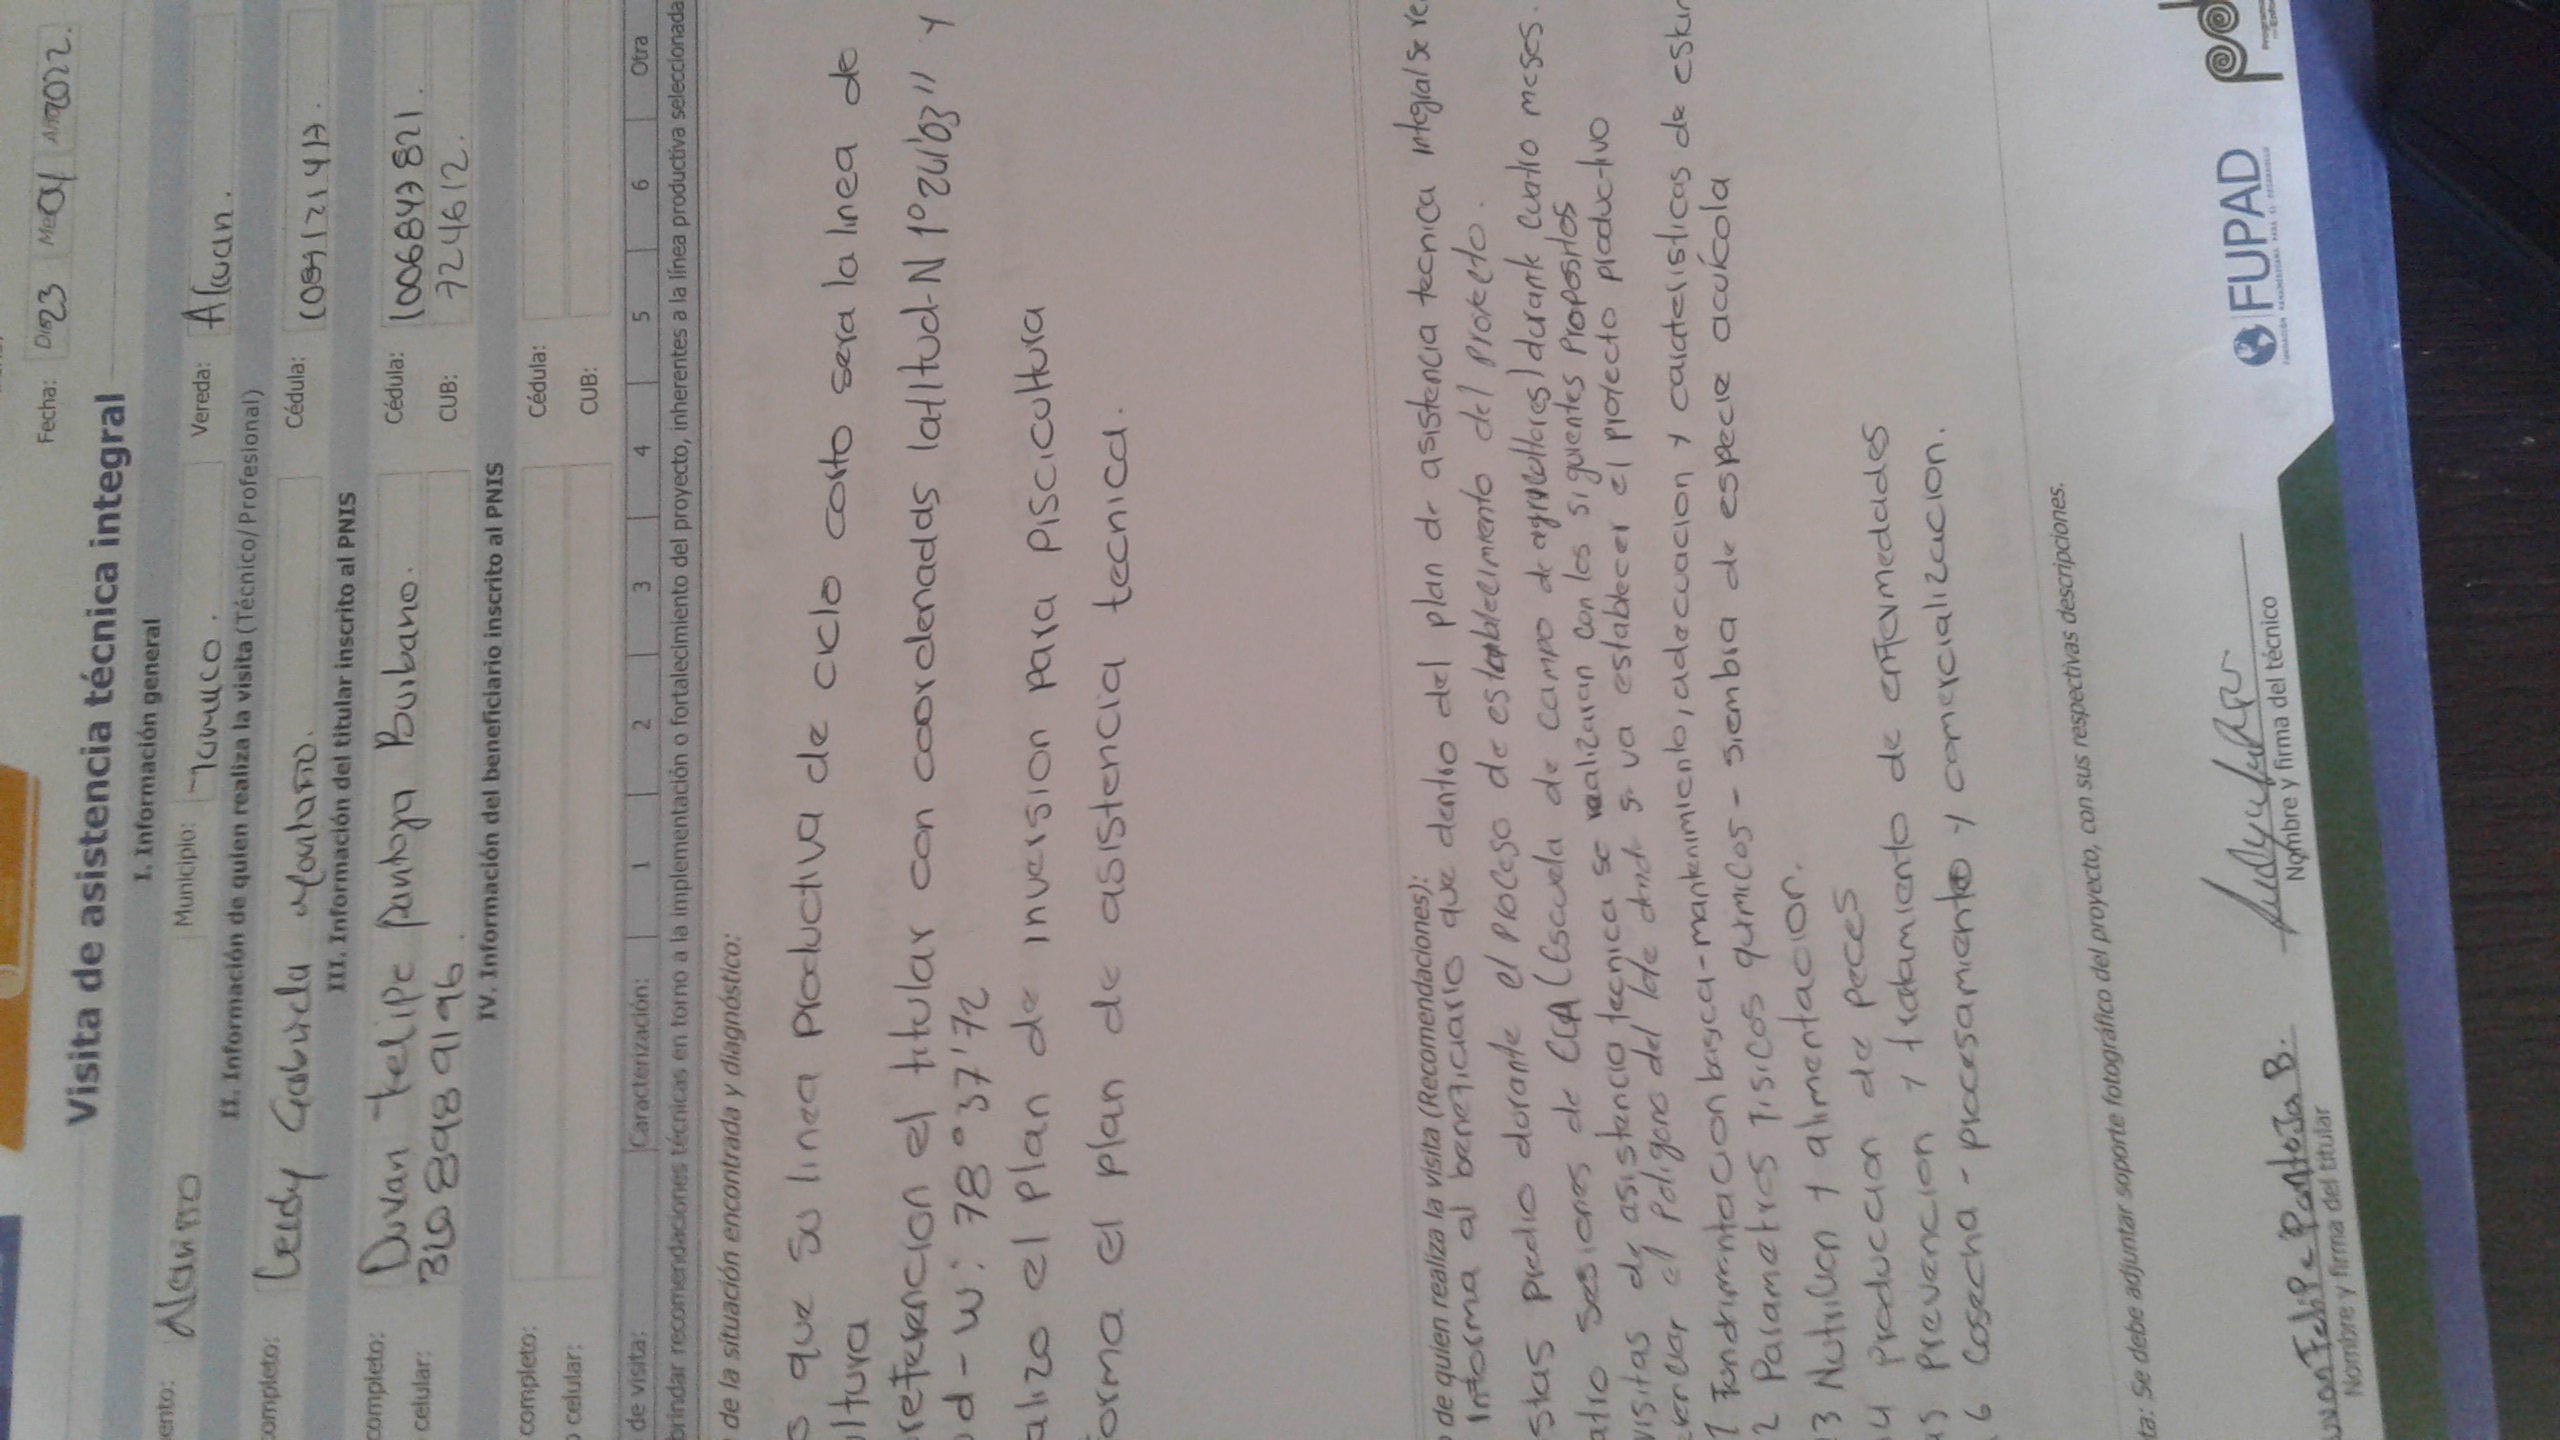 Fecha: Día 23 Mes 04 Año 2022.
Visita de asistencia técnica integral
I. Información general
ento: Nariño Municipio: Tumuco. Vereda:
II. Información de quien realiza la visita (Técnico/Profesional)
completo: Leidy Gabriela Montaño. Cédula:
III. Información del titular inscrito al PNIS
completo: Duvan Felipe Pantoja Burbano. Cédula: 1006847821.
celular: 3108989196. CUB: 724612.
IV. Información del beneficiario inscrito al PNIS
completo: Cédula:
celular: CUB:
de visita: Caracterización: 1 2 3 4 5 6 Otra
brindar recomendaciones técnicas en torno a la implementación o fortalecimiento del proyecto, inherentes a la línea productiva seleccionada
de la situación encontrada y diagnóstico:
s que su linea productiva de ciclo corto sera la linea de
ultura
oreferencion el titular con coordenadas latitud-N 1°24'03" y
ud - W: 78°37'72
alizo el plan de inversion para piscicultura
forma el plan de asistencia tecnica.
de quien realiza la visita (Recomendaciones):
Informa al beneficiario que dentro del plan de asistencia tecnica integral se re
stas predio durante el proceso de establecimiento del proyecto.
atro sesiones de ECA (Escuela de campo de agricultores) durante cuatro meses.
visitas de asistencia tecnica se realizaran con los siguientes propositos
el poligono del lote donde se va establecer el proyecto productivo
1 mantenimiento, adecuacion y carateristicas de
2 Parametros fisicos quimicos - siembra de especie acuicola
3 Nutricion y alimentacion.
4 Produccion de peces
5 Prevencion y tratamiento de enfermedades
6 Cosecha - procesamiento y comercializacion.
ta: Se debe adjuntar soporte fotográfico del proyecto, con sus respectivas descripciones.
uvan Felipe Pantoja B.
Nombre y firma del titular Nombre y firma del técnico
FUPAD
FUNDACIÓN PANAMERICANA PARA EL DESARROLLO